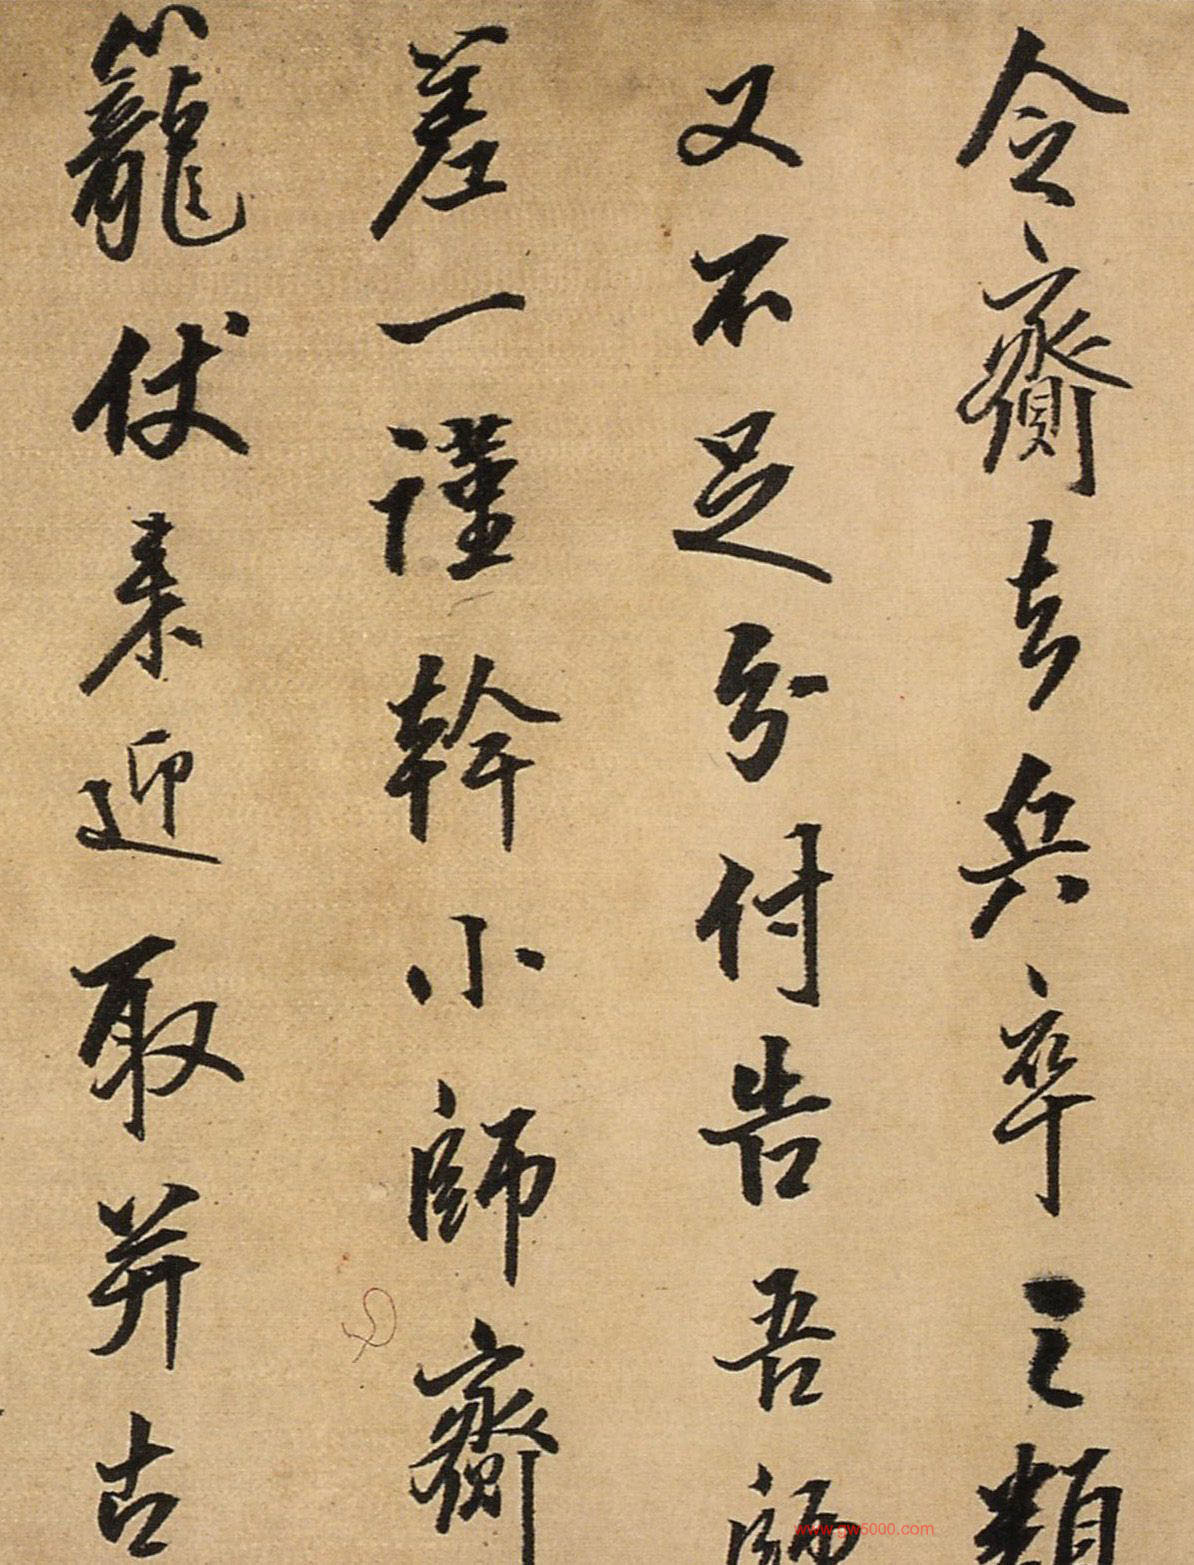 令齎去兵卒之類
又不足分付告吾師
差一謹幹小師齎
籠仗来迎取并古
www.gw5000.com